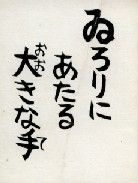 ゐろりに
あたる
大きな手
おお
て